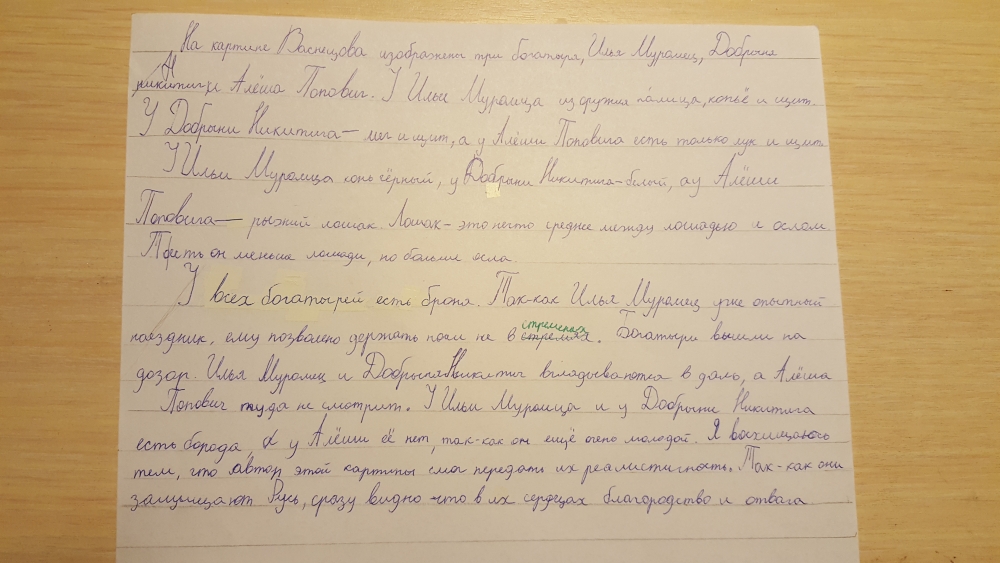 На картине Васнецова изображены три богатыря, Илья Муромец, Добрыня
Никитич и Алёша Попович. У Ильи Муромца из оружия палица, копьё и щит.
У Добрыни Никитича — меч и щит, а у Алёши Поповича есть только лук и щит
У Ильи Муромца конь чёрный, у Добрыни Никитича - белый, а у Алёши
Поповича — рыжий лошак. Лошак - это нечто среднее между лошадью и ослом.
То есть он меньше лошади, но больше осла.
У всех богатырей есть броня. Так-как Илья Муромец уже опытный
наездник, ему позволено держать ноги не в стременах. Богатыри вышли на
дозор. Илья Муромец и Добрыня Никитич вглядываются в даль, а Алёша
Попович туда не смотрит. У Ильи Муромца и у Добрыни Никитича
есть борода, а у Алёши её нет, так-как он ещё очень молодой. Я восхищаюсь
тем, что автор этой картины смог передать их реалистичность. Так-как они
защищают Русь, сразу видно что в их сердцах благородство и отвага.